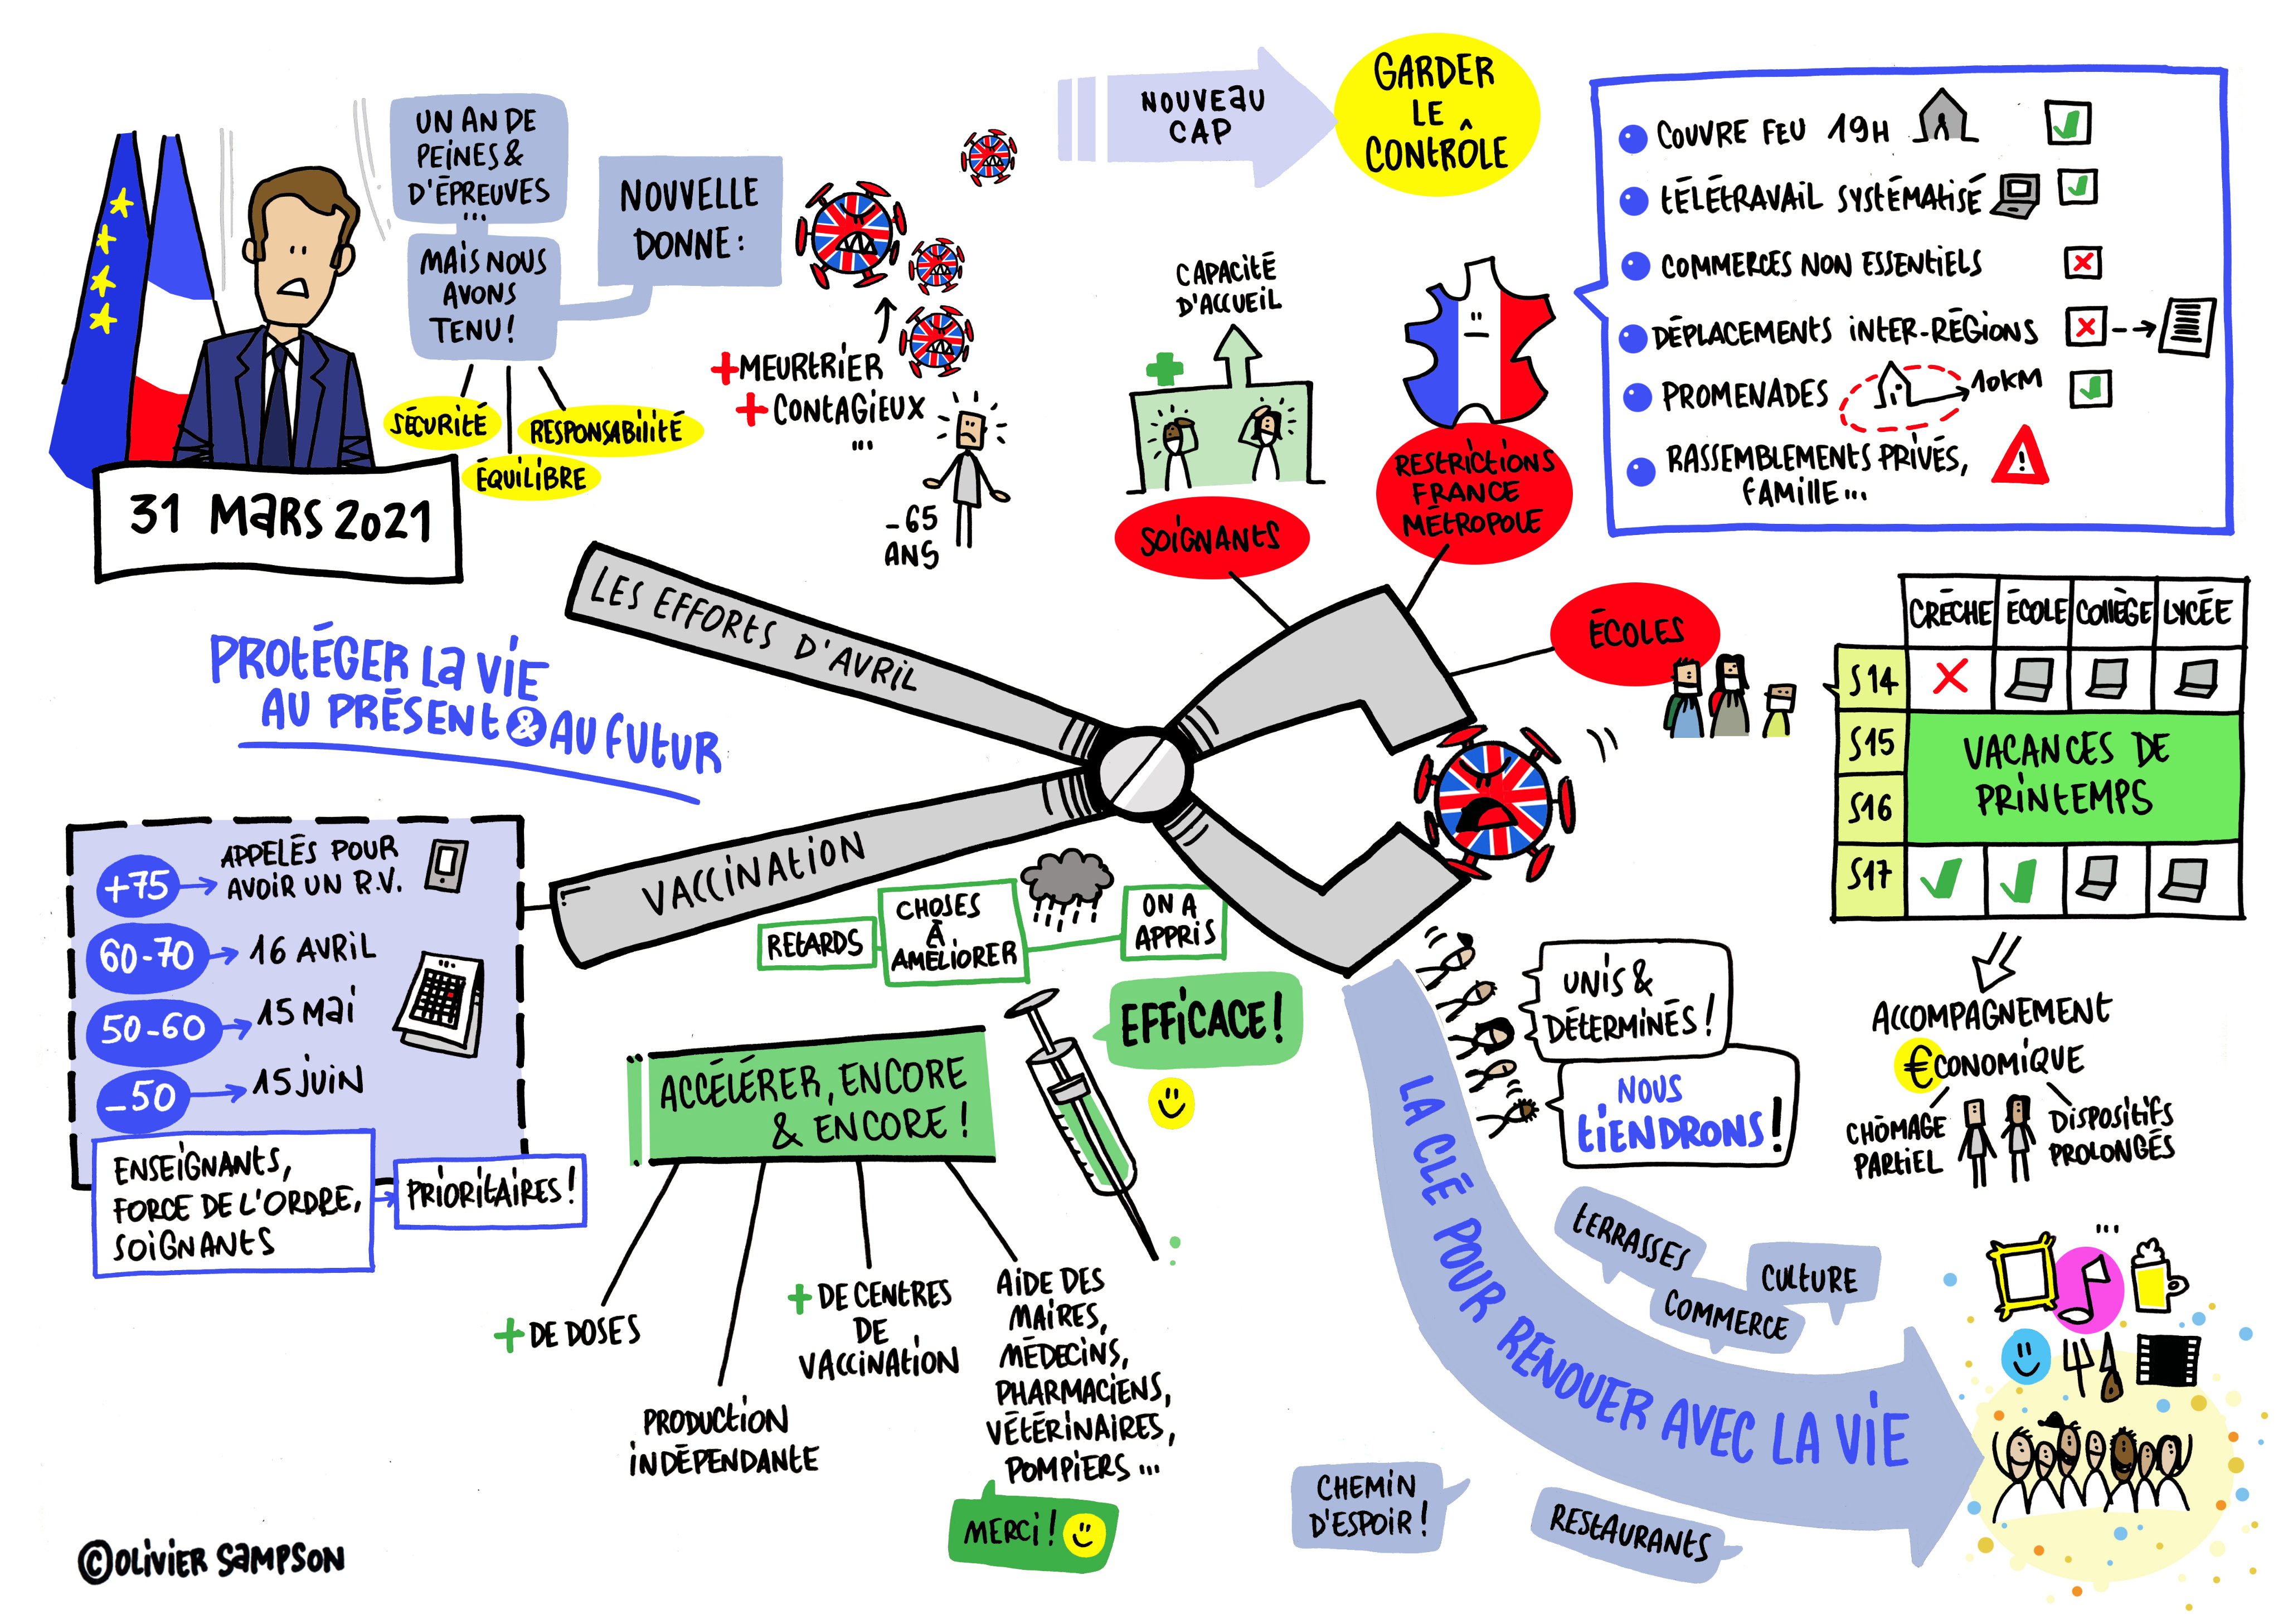 UN AN DE
PEINES &
D'ÉPREUVES
...
MAIS NOUS
AVONS
TENU!
SÉCURITÉ
ÉQUILIBRE
RESPONSABILITÉ
31 MARS 2021
NOUVELLE
DONNE:
+ MEURTRIER
+ CONTAGIEUX
...
-65
ANS
NOUVEAU
CAP
GARDER
LE
CONTRÔLE
CAPACITÉ
D'ACCUEIL
SOIGNANTS
RESTRICTIONS
FRANCE
MÉTROPOLE
COUVRE FEU 19H
TÉLÉTRAVAIL SYSTÉMATISÉ
COMMERCES NON ESSENTIELS
DÉPLACEMENTS INTER-RÉGIONS
PROMENADES 10KM
RASSEMBLEMENTS PRIVÉS,
FAMILLE...
ÉCOLES
CRÈCHE ÉCOLE COLLÈGE LYCÉE
S14
S15
S16
VACANCES DE
PRINTEMPS
S17
ACCOMPAGNEMENT
€CONOMIQUE
CHÔMAGE
PARTIEL
DISPOSITIFS
PROLONGÉS
LES EFFORTS D'AVRIL
VACCINATION
PROTÉGER LA VIE
AU PRÉSENT & AU FUTUR
+75
APPELÉS POUR
AVOIR UN R.V.
60-70 16 AVRIL
50-60 15 MAI
-50 15 JUIN
ENSEIGNANTS,
FORCE DE L'ORDRE,
SOIGNANTS
PRIORITAIRES!
RETARDS
CHOSES
À
AMÉLIORER
ON A
APPRIS
EFFICACE!
ACCÉLÉRER, ENCORE
& ENCORE!
+ DE DOSES
PRODUCTION
INDÉPENDANTE
+ DE CENTRES
DE
VACCINATION
AIDE DES
MAIRES,
MÉDECINS,
PHARMACIENS,
VÉTÉRINAIRES,
POMPIERS...
MERCI!
UNIS &
DÉTERMINÉS!
NOUS
TIENDRONS!
LA CLÉ POUR RENOUER AVEC LA VIE
TERRASSES
COMMERCE
CULTURE
...
CHEMIN
D'ESPOIR!
RESTAURANTS
©OLIVIER SAMPSON